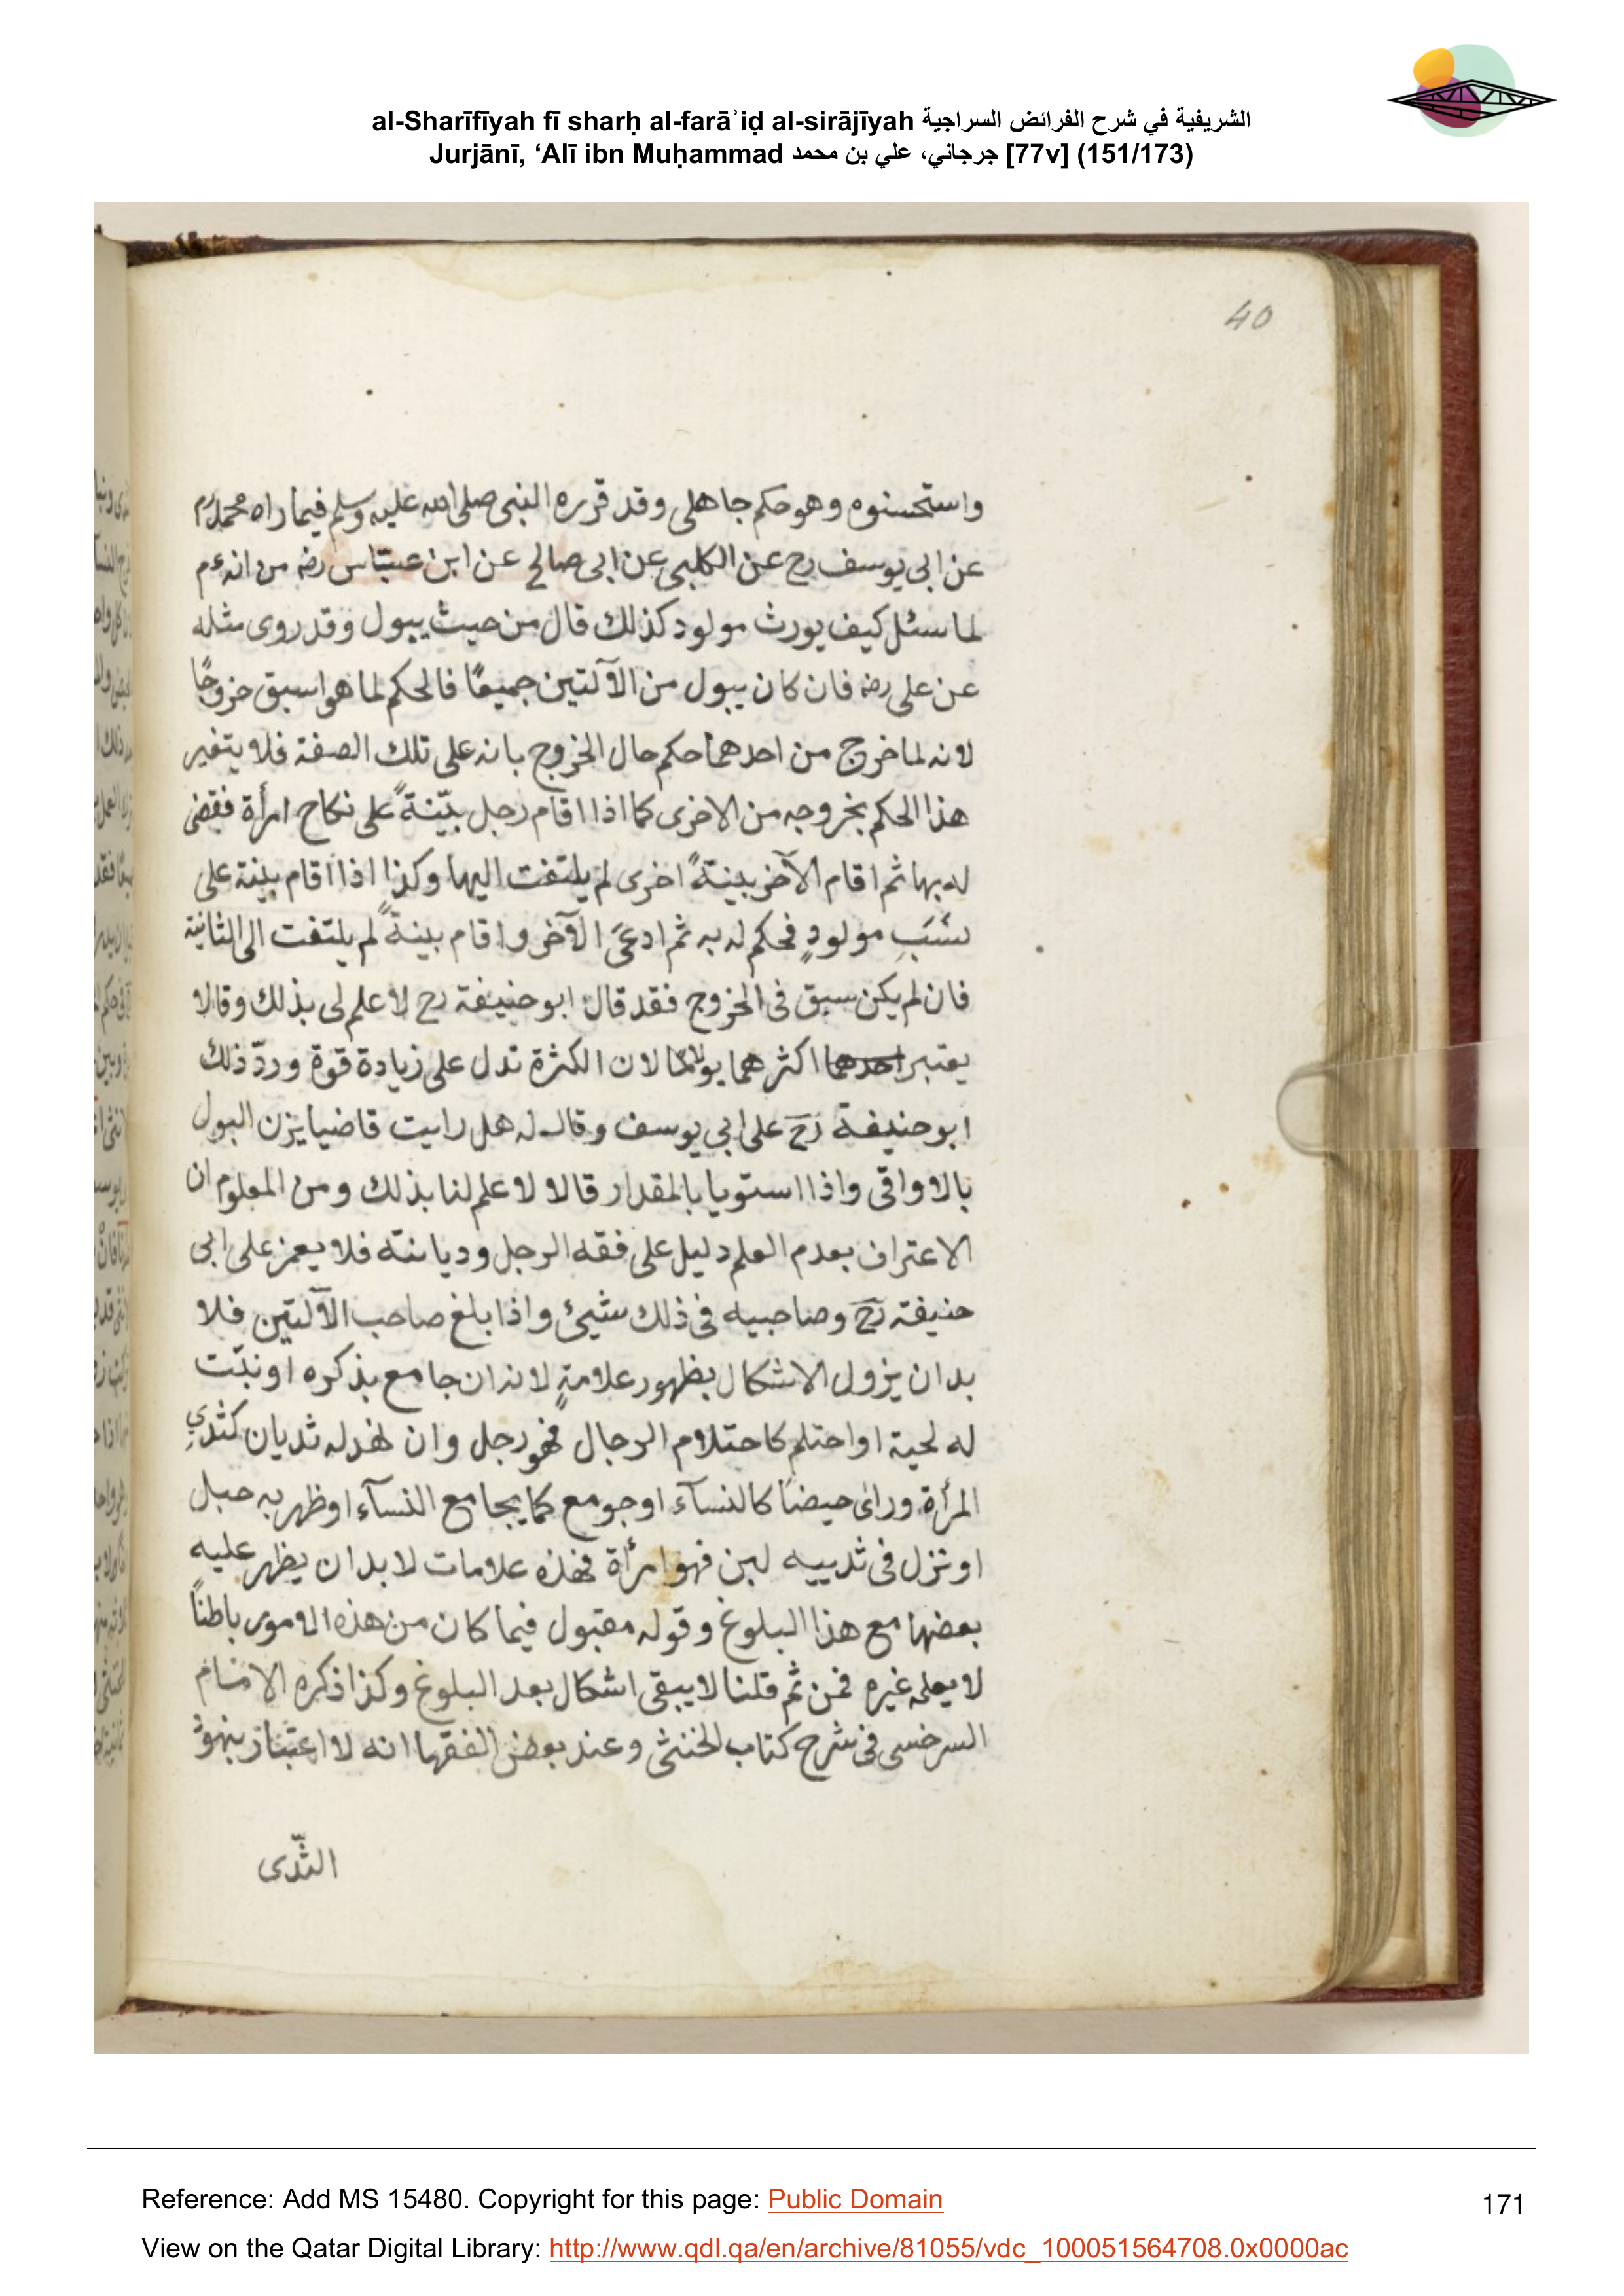 al-Sharīfīyah fī sharḥ al-farāʾiḍ al-sirājīyah الشريفية في شرح الفرائض السراجية
Jurjānī, ‘Alī ibn Muḥammad جرجاني، علي بن محمد [77v] (151/173)
40
واستحسنوه وهو حكم جاهلى وقد قرره النبى صلى الله عليه وسلم فيما راه محمد رح
عن ابى يوسف رح عن الكلبى عن ابى صالح عن ابن عبّاس رضه من انه ءم
لما سئل كيف يورث مولود كذلك قال من حيث يبول وقد روى مثله
عن على رضه فان كان يبول من الآلتين جميعًا فالحكم لما هو اسبق خروجًا
لانه لما خرج من احدهما حكم حال الخروج بانه على تلك الصفة فلا يتغير
هذا الحكم بخروجه من الاخرى كما اذا اقام رجل بيّنةً على نكاح امرأة فقضى
له بها ثم اقام الآخر بينةً اخرى لم يلتفت اليها وكذا اذا اقام بينة على
نسَبِ مولودٍ فحكم له به ثم ادعىَ الآخر واقام بينةً لم يلتفت الى الثانية
فان لم يكن سبق فى الخروج فقد قال ابو حنيفة رح لا علم لى بذلك وقالا
يعتبر احدهما اكثرهما بولًا لان الكثرة تدل على زيادة قوة وردّ ذلك
ابو حنيفة رح على ابى يوسف وقال له هل رايت قاضيا يزن البول
بالاواقى واذا استويا بالمقدار قالا لا علم لنا بذلك ومن المعلوم ان
الاعتراف بعدم العلم دليل على فقه الرجل وديانته فلا يعمز على ابى
حنيفة رح وصاحبيه فى ذلك شيئ واذا بلغ صاحب الآلتين فلا
بد ان يزول الاشكال بظهور علامةٍ لانه ان جامع بذكره او نبّت
له لحية او احتلم كاحتلام الرجال فهو رجل وان لهذ له ثديان كثدىِ
المرأة وراى حيضًا كالنسآء او جومع كما يجامع النسآء او ظهر به حبل
او نزل فى ثدييه لبن فهو امرأة فهذه علامات لا بد ان يظهر عليه
بعضها مع هذا البلوغ وقوله مقبول فيما كان من هذه الامور باطنًا
لا يعلمه غيره فمن ثم قلنا لا يبقى اشكال بعد البلوغ وكذا ذكره الامام
السرخسى فى شرح كتاب الخنثى وعند بعض الفقها انه لا اعتبار بنهوْ
الثّدى
Reference: Add MS 15480. Copyright for this page: Public Domain
171
View on the Qatar Digital Library: http://www.qdl.qa/en/archive/81055/vdc_100051564708.0x0000ac